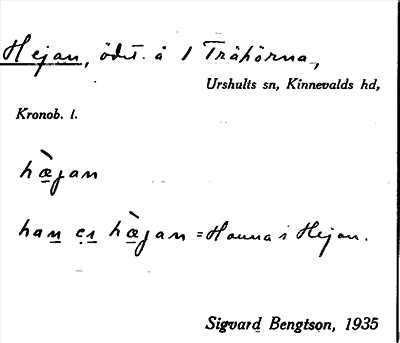 Hejan, ödet. å 1 Tråhörna,
Urshults sn, Kinnevalds hd,
Kronob. l.
hæ̀jan
han
hæ̀jan = Hanna i Hejan.
Sigvard Bengtson, 1935